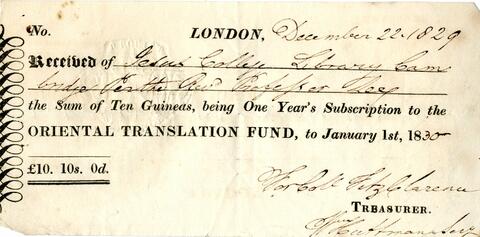 No. LONDON, December 22. 1829
Received of Jesus College Library Cam
bridge Per the Revd Professor Lee
the Sum of Ten Guineas, being One Year's Subscription to the
ORIENTAL TRANSLATION FUND, to January 1st, 1830
£10. 10s. 0d. For Col. Fitz Clarence
TREASURER.
Wm Huttmann Secy